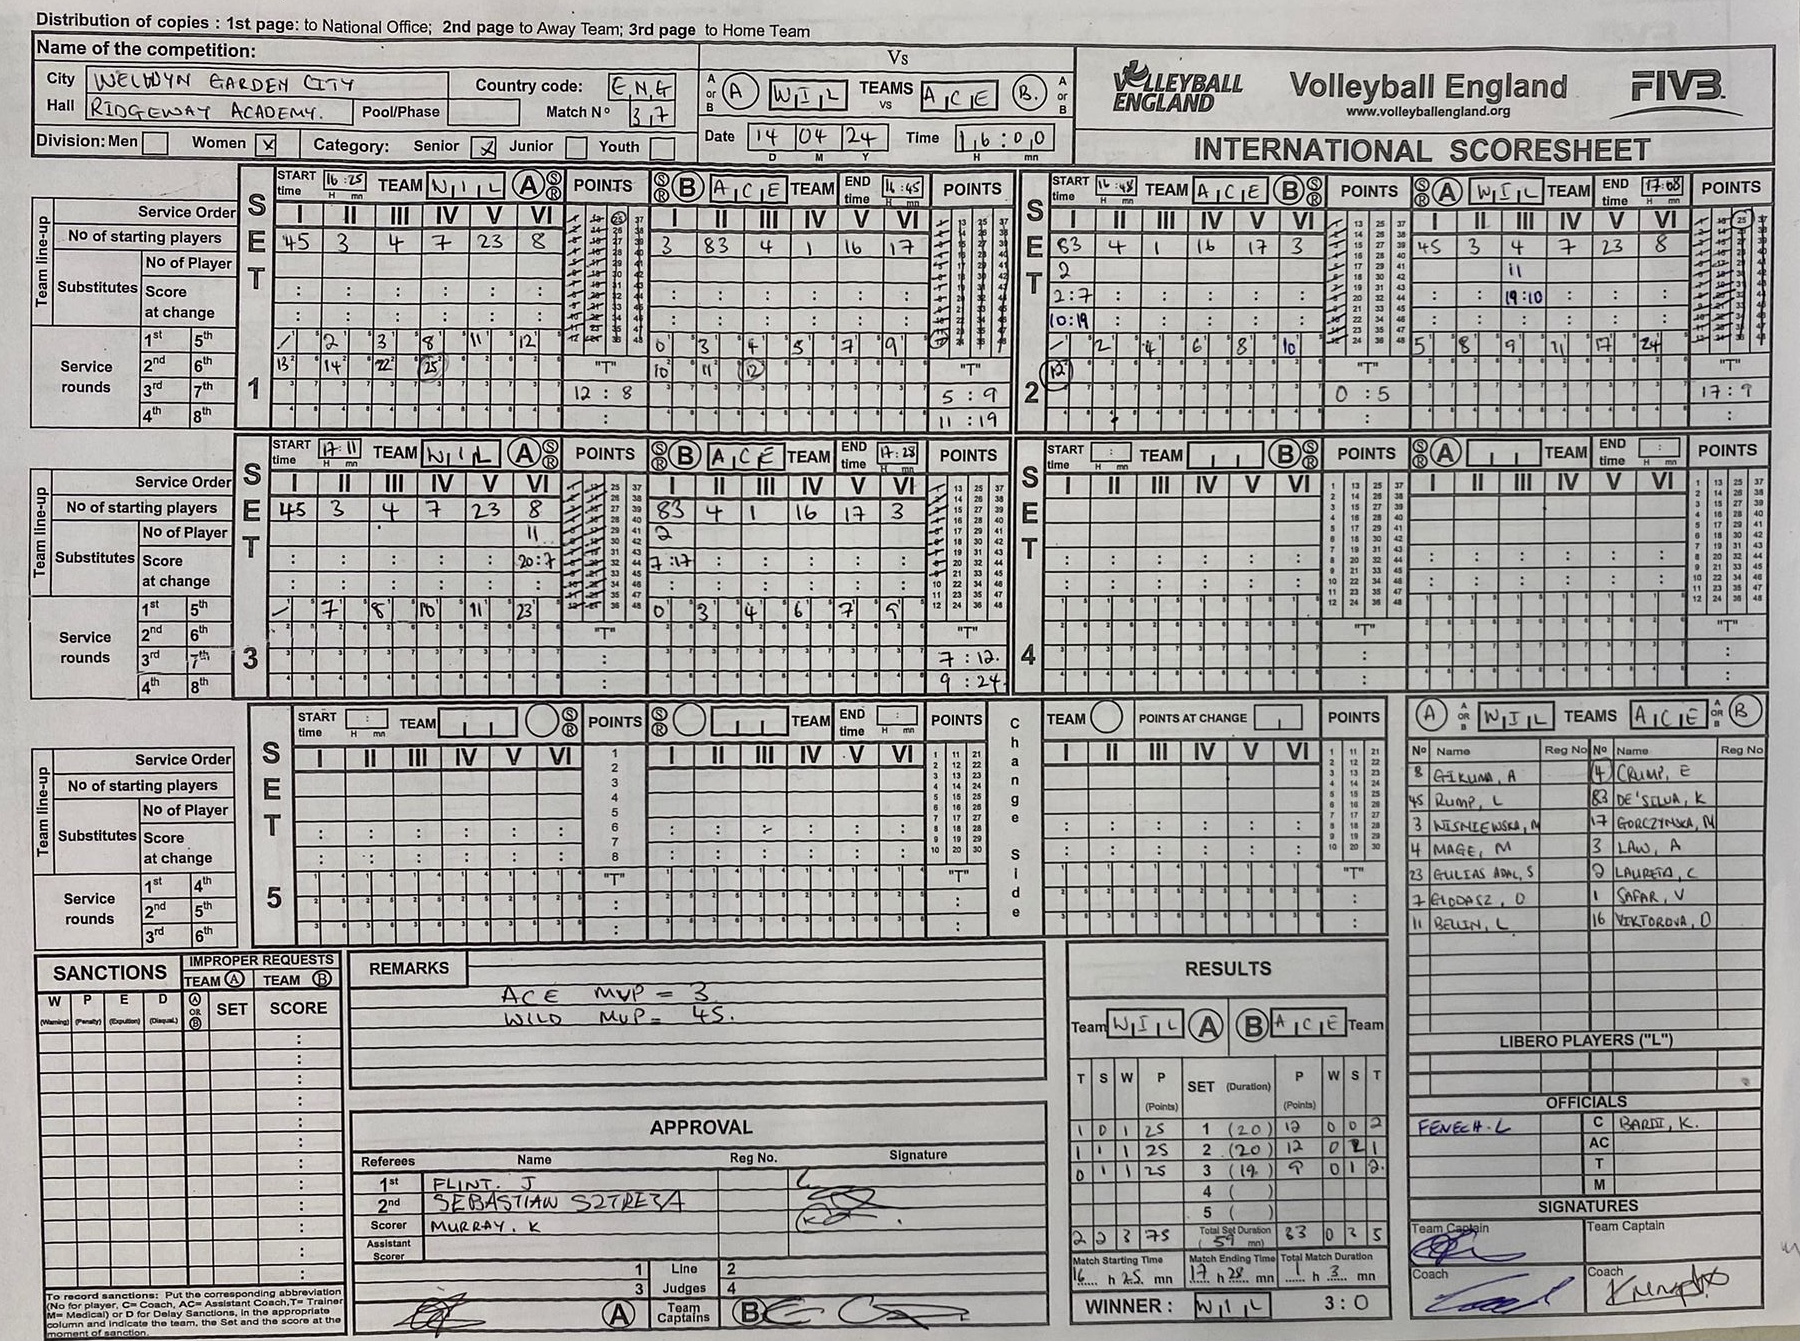 Distribution of copies : 1st page: to National Office; 2nd page to Away Team; 3rd page to Home Team
Name of the competition:
City WELWYN GARDEN CITY Country code: ENG
Hall RIDGEWAY ACADEMY. Pool/Phase Match Nº 37
Division: Men Women X Category: Senior X Junior Youth
Vs
A or B A WIL TEAMS vs ACE B. A or B
Date 14 04 24 Time 16:00
D M Y H mn
VOLLEYBALL ENGLAND Volleyball England FIVB
www.volleyballengland.org
INTERNATIONAL SCORESHEET
SET 1
START time 16:25 TEAM WIL A S R POINTS S R B ACE TEAM END time 16:45 POINTS
Service Order I II III IV V VI I II III IV V VI
No of starting players 45 3 4 7 23 8 3 83 4 1 16 17
Team line-up Substitutes No of Player
Score at change
Service rounds
1st 5th 2 3 8 11 12 0 3 4 5 7 9
2nd 6th 13 14 22 25 10 11 12
3rd 7th
4th 8th
"T" 12 : 8 "T" 5 : 9
11 : 19
SET 2
START time 16:48 TEAM ACE B S R POINTS S R A WIL TEAM END time 17:08 POINTS
I II III IV V VI I II III IV V VI
83 4 1 16 17 3 45 3 4 7 23 8
2 11
2:7 19:10
10:19
2 4 6 8 10 5 8 9 11 17 24
12
"T" 0 : 5 "T" 17 : 9
SET 3
START time 17:11 TEAM WIL A S R POINTS S R B ACE TEAM END time 17:28 POINTS
Service Order I II III IV V VI I II III IV V VI
No of starting players 45 3 4 7 23 8 83 4 1 16 17 3
Team line-up Substitutes No of Player 11 2
Score at change 20:7 7:17
Service rounds
1st 5th 7 8 10 11 23 0 3 4 6 7 9
2nd 6th
3rd 7th
4th 8th
"T" "T" 7 : 12.
9 : 24.
SET 4
START time TEAM B S R POINTS S R A TEAM END time POINTS
I II III IV V VI I II III IV V VI
"T" "T"
SET 5
START time TEAM S R POINTS S R TEAM END time POINTS Change Side TEAM POINTS AT CHANGE POINTS
Service Order I II III IV V VI I II III IV V VI I II III IV V VI
No of starting players
Team line-up Substitutes No of Player
Score at change
Service rounds
1st 4th
2nd 5th
3rd 6th
"T" "T" "T"
A A OR B WIL TEAMS ACE A OR B B
Nº Name Reg No Nº Name Reg No
8 GIKUMA, A 4 CRUMP, E
45 RUMP, L 83 DE'SILVA, K
3 WISNIEWSKA, M 17 GORCZYNSKA, M
4 MAGE, M 3 LAW, A
23 GULIAS ADAL, S 2 LAURETA, C
7 GLODASZ, O 1 SAFAR, V
11 BELLIN, L 16 VIKTOROVA, D
LIBERO PLAYERS ("L")
OFFICIALS
FENECH. L C BARDI, K.
AC
T
M
SIGNATURES
Team Captain Team Captain
Coach Coach
SANCTIONS IMPROPER REQUESTS
TEAM A TEAM B
W P E D A OR B SET SCORE
(Warning) (Penalty) (Expultion) (Disqual.)
To record sanctions: Put the corresponding abbreviation
(No for player, C= Coach, AC= Assistant Coach,T= Trainer
M= Medical) or D for Delay Sanctions, in the appropriate
column and indicate the team, the Set and the score at the
moment of sanction.
REMARKS
ACE MVP = 3
WILD MVP = 45.
APPROVAL
Referees Name Reg No. Signature
1st FLINT. J
2nd SEBASTIAN SZTREJA
Scorer MURRAY. K
Assistant Scorer
1 Line 2
3 Judges 4
A Team Captains B
RESULTS
Team WIL A B ACE Team
T S W P (Points) SET (Duration) P (Points) W S T
1 0 1 25 1 (20) 12 0 0 2
1 1 1 25 2 (20) 12 0 1
0 1 1 25 3 9 0 1 2.
4 ( )
5 ( )
2 2 3 75 Total Set Duration ( 59 mn) 33 0 5
Match Starting Time Match Ending Time Total Match Duration
16 h 25 mn 17 h 28 mn 1 h 3 mn
WINNER : WIL 3:0